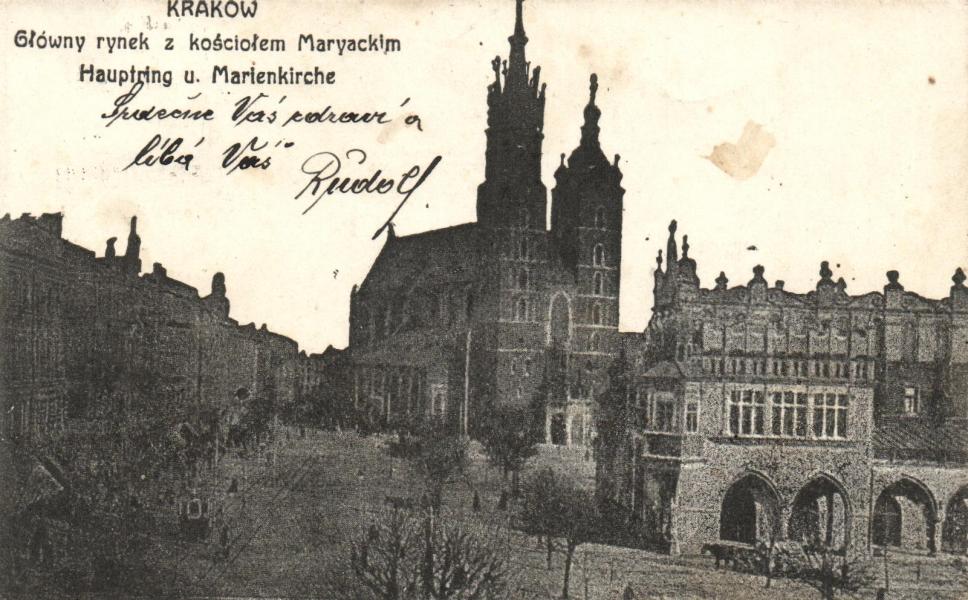 KRAKÓW
Główny rynek z kościołem Maryackim
Hauptring u. Marienkirche
Srdečně Vás zdraví a
líbá Váš
Rudolf.